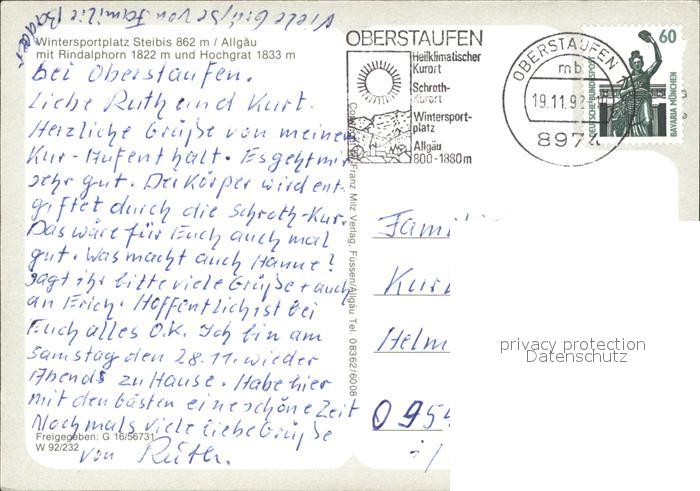 Viele Grüße von Familie Bader
Wintersportplatz Steibis 862 m / Allgäu
mit Rindalphorn 1822 m und Hochgrat 1833 m
bei Oberstaufen.
Liebe Ruth und Kurt.
Herzliche Grüße von meinem
Kur-Aufenthalt. Es geht mir
sehr gut. Der Körper wird ent-
giftet durch die Schroth-Kur.
Das wäre für Euch auch mal
gut. Was macht auch Hanne?
Sagt ihr bitte viele Grüße + auch
an Erich. Hoffentlich ist bei
Euch alles O.K. Ich bin am
Samstag den 28.11. wieder
Abends zu Hause. Habe hier
mit den Gästen eine schöne Zeit
Nochmals viele liebe Grüße
von Ruth.
Freigegeben: G 16/56731
W 92/232
Franz Milz Verlag, Füssen/Allgäu Tel. 08362/6008
OBERSTAUFEN
Heilklimatischer
Kurort
Schroth-
Kurort
Wintersport-
platz
Allgäu
800-1880 m
OBERSTAUFEN
mb
19.11.92
897
60
DEUTSCHE BUNDESPOST
BAVARIA MÜNCHEN
Fami
Kur
Helm
095
i/
privacy protection
Datenschutz